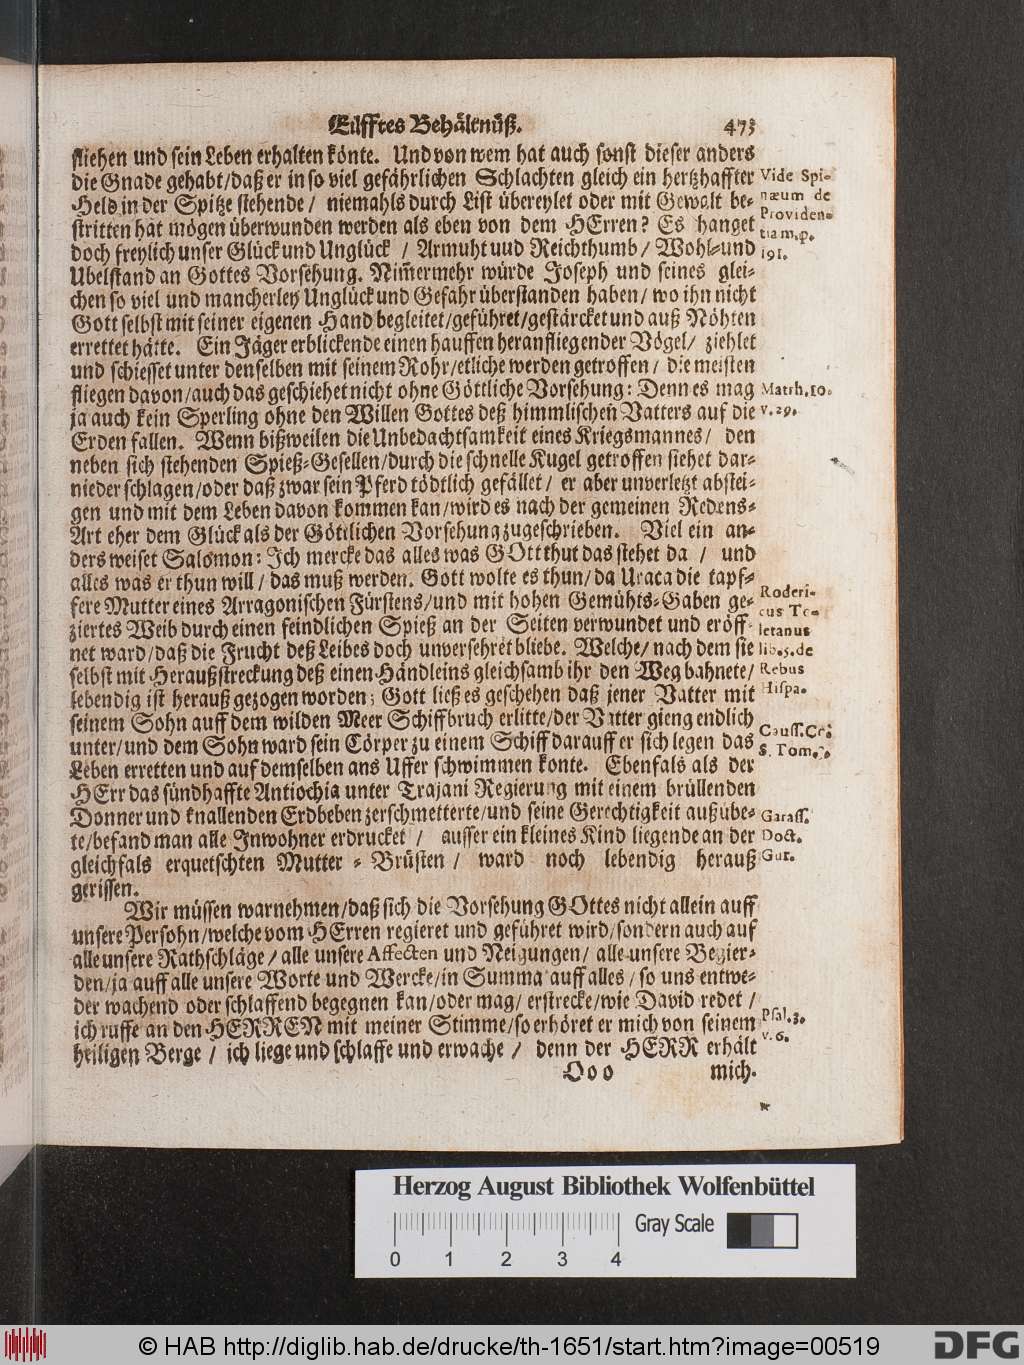 Eilfftes Behältnüß.
473
fliehen und sein Leben erhalten könte. Und von wem hat auch sonst dieser anders
die Gnade gehabt/daß er in so viel gefährlichen Schlachten gleich ein hertzhaffter
Held in der Spitze stehende / niemahls durch List übereylet oder mit Gewalt be-
stritten hat mögen überwunden werden als eben von dem HErren? Es hanget
doch freylich unser Glück und Unglück / Armuht uud Reichthumb/ Wohl-und
Ubelstand an Gottes Vorsehung. Nim̃ermehr würde Joseph und seines glei-
chen so viel und mancherley Unglück und Gefahr überstanden haben/ wo ihn nicht
Gott selbst mit seiner eigenen Hand begleitet/geführet/gestärcket und auß Nöhten
errettet hätte. Ein Jäger erblickende einen hauffen heranfliegender Vögel/ ziehlet
und schiesset unter denselben mit seinem Rohr/etliche werden getroffen/ die meisten
fliegen davon/auch das geschiehet nicht ohne Göttliche Vorsehung: Denn es mag
ja auch kein Sperling ohne den Willen Gottes deß himmlischen Vatters auf die
Erden fallen. Wenn bißweilen die Unbedachtsamkeit eines Kriegsmannes/ den
neben sich stehenden Spieß-Gesellen/durch die schnelle Kugel getroffen siehet dar-
nieder schlagen/oder daß zwar sein Pferd tödtlich gefället/ er aber unverletzt abstei-
gen und mit dem Leben davon kommen kan/wird es nach der gemeinen Redens-
Art eher dem Glück als der Göttlichen Vorsehung zugeschrieben. Viel ein an-
ders weiset Salomon: Ich mercke das alles was GOtt thut das stehet da / und
alles was er thun will/das muß werden. Gott wolte es thun/da Uraca die tapf-
fere Mutter eines Arragonischen Fürstens/und mit hohen Gemühts-Gaben ge-
ziertes Weib durch einen feindlichen Spieß an der Seiten verwundet und eröff-
net ward/daß die Frucht deß Leibes doch unversehret bliebe. Welche/nach dem sie
selbst mit Heraußstreckung deß einen Händleins gleichsamb ihr den Weg bahnete/
lebendig ist herauß gezogen worden; Gott ließ es geschehen daß jener Vatter mit
seinem Sohn auff dem wilden Meer Schiffbruch erlitte/der Vatter gieng endlich
unter/und dem Sohn ward sein Cörper zu einem Schiff darauff er sich legen das
Leben erretten und auf demselben ans Uffer schwimmen konte. Ebenfals als der
HErr das sündhaffte Antiochia unter Trajani Regierung mit einem brüllenden
Donner und knallenden Erdbeben zerschmetterte/und seine Gerechtigkeit außübe-
te/befand man alle Inwohner erdrucket / ausser ein kleines Kind liegende an der
gleichfals erquetschten Mutter-Brüsten/ ward noch lebendig herauß
gerissen.
Wir müssen warnehmen/daß sich die Vorsehung GOttes nicht allein auff
unsere Persohn/welche vom HErren regieret und geführet wird/sondern auch auf
alle unsere Rathschläge/alle unsere Affecten und Neigungen/ alle unsere Begier-
den/ja auff alle unsere Worte und Wercke/in Summa auff alles/so uns entwe-
der wachend oder schlaffend begegnen kan/oder mag/ erstrecke/wie David redet/
ich ruffe an den HERREN mit meiner Stimme/so erhöret er mich von seinem
heiligen Berge / ich liege und schlaffe und erwache / denn der HERR erhält
Ooo
mich.
Vide Spi-
næum de
Providen-
tia m. p.
191.
Matth. 10.
v. 29.
Roderi-
cus To-
letanus
lib. 5. de
Rebus
Hispa-
Garass.
Doct.
Gur.
Psal. 3.
v. 6.
Herzog August Bibliothek Wolfenbüttel
Gray Scale
0 1 2 3 4
© HAB http://diglib.hab.de/drucke/th-1651/start.htm?image=00519
DFG